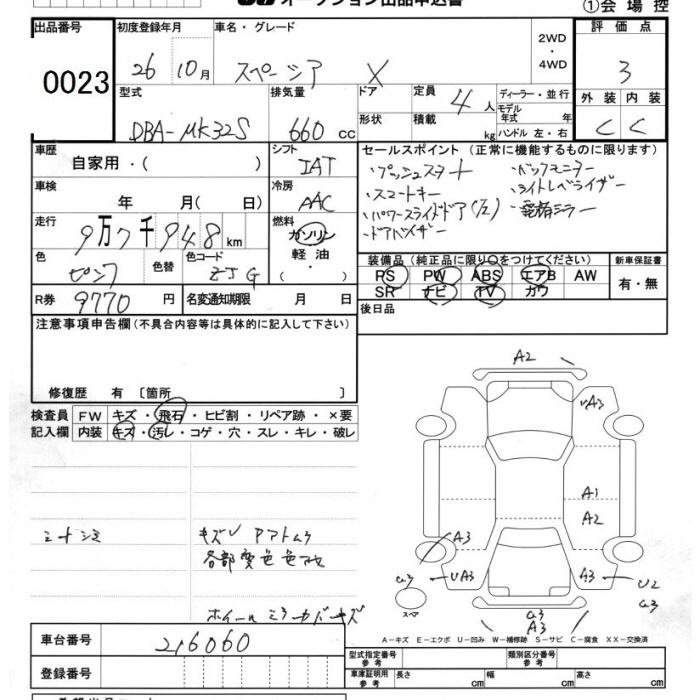 オークション出品申込書
①会場控
出品番号 初度登録年月 車名・グレード 評価点
0023 26 10月 スペーシア X 2WD ・ 4WD 3
型式 排気量 ドア 定員 4人 ディーラー・並行 外装 内装
DBA-MK32S 660cc 形状 積載 kg モデル年式 年 ハンドル 左・右 C C
車歴 自家用・( ) シフト IAT セールスポイント(正常に機能するものに限ります)
車検 年 月( 日) 冷房 AAC
・プッシュスタート ・バックモニター
・スマートキー ・ライトレベライザー
・パワースライドドア(左) ・電格ミラー
・ドアバイザー
走行 9万7千948km 燃料 ガソリン 軽油・
色 ピンク 色替 色コード ZJG
装備品(純正品に限り○をつけてください) 新車保証書
RS PW ABS エアB AW 有・無
SR ナビ TV カワ
R券 9770円 名変通知期限 月 日
後日品
注意事項申告欄(不具合内容等は具体的に記入して下さい)
修復歴 有〔箇所 〕
検査員 FW キズ・飛石・ヒビ割・リペア跡・×要
記入欄 内装 キズ・汚レ・コゲ・穴・スレ・キレ・破レ
A2
A3
A1
A2
シートシミ
各部変色色アセ
A3
G3 UA3 A3 U2
スペア G3
G3
A3
ホイール ミラーカバーキズ
A−キズ E−エクボ U−凹み W−補修跡 S−サビ C−腐食 XX−交換済
車台番号 216060
登録番号
型式指定番号 参考 類別区分番号 参考
車庫証明用 参考 長さ cm 幅 cm 高さ cm